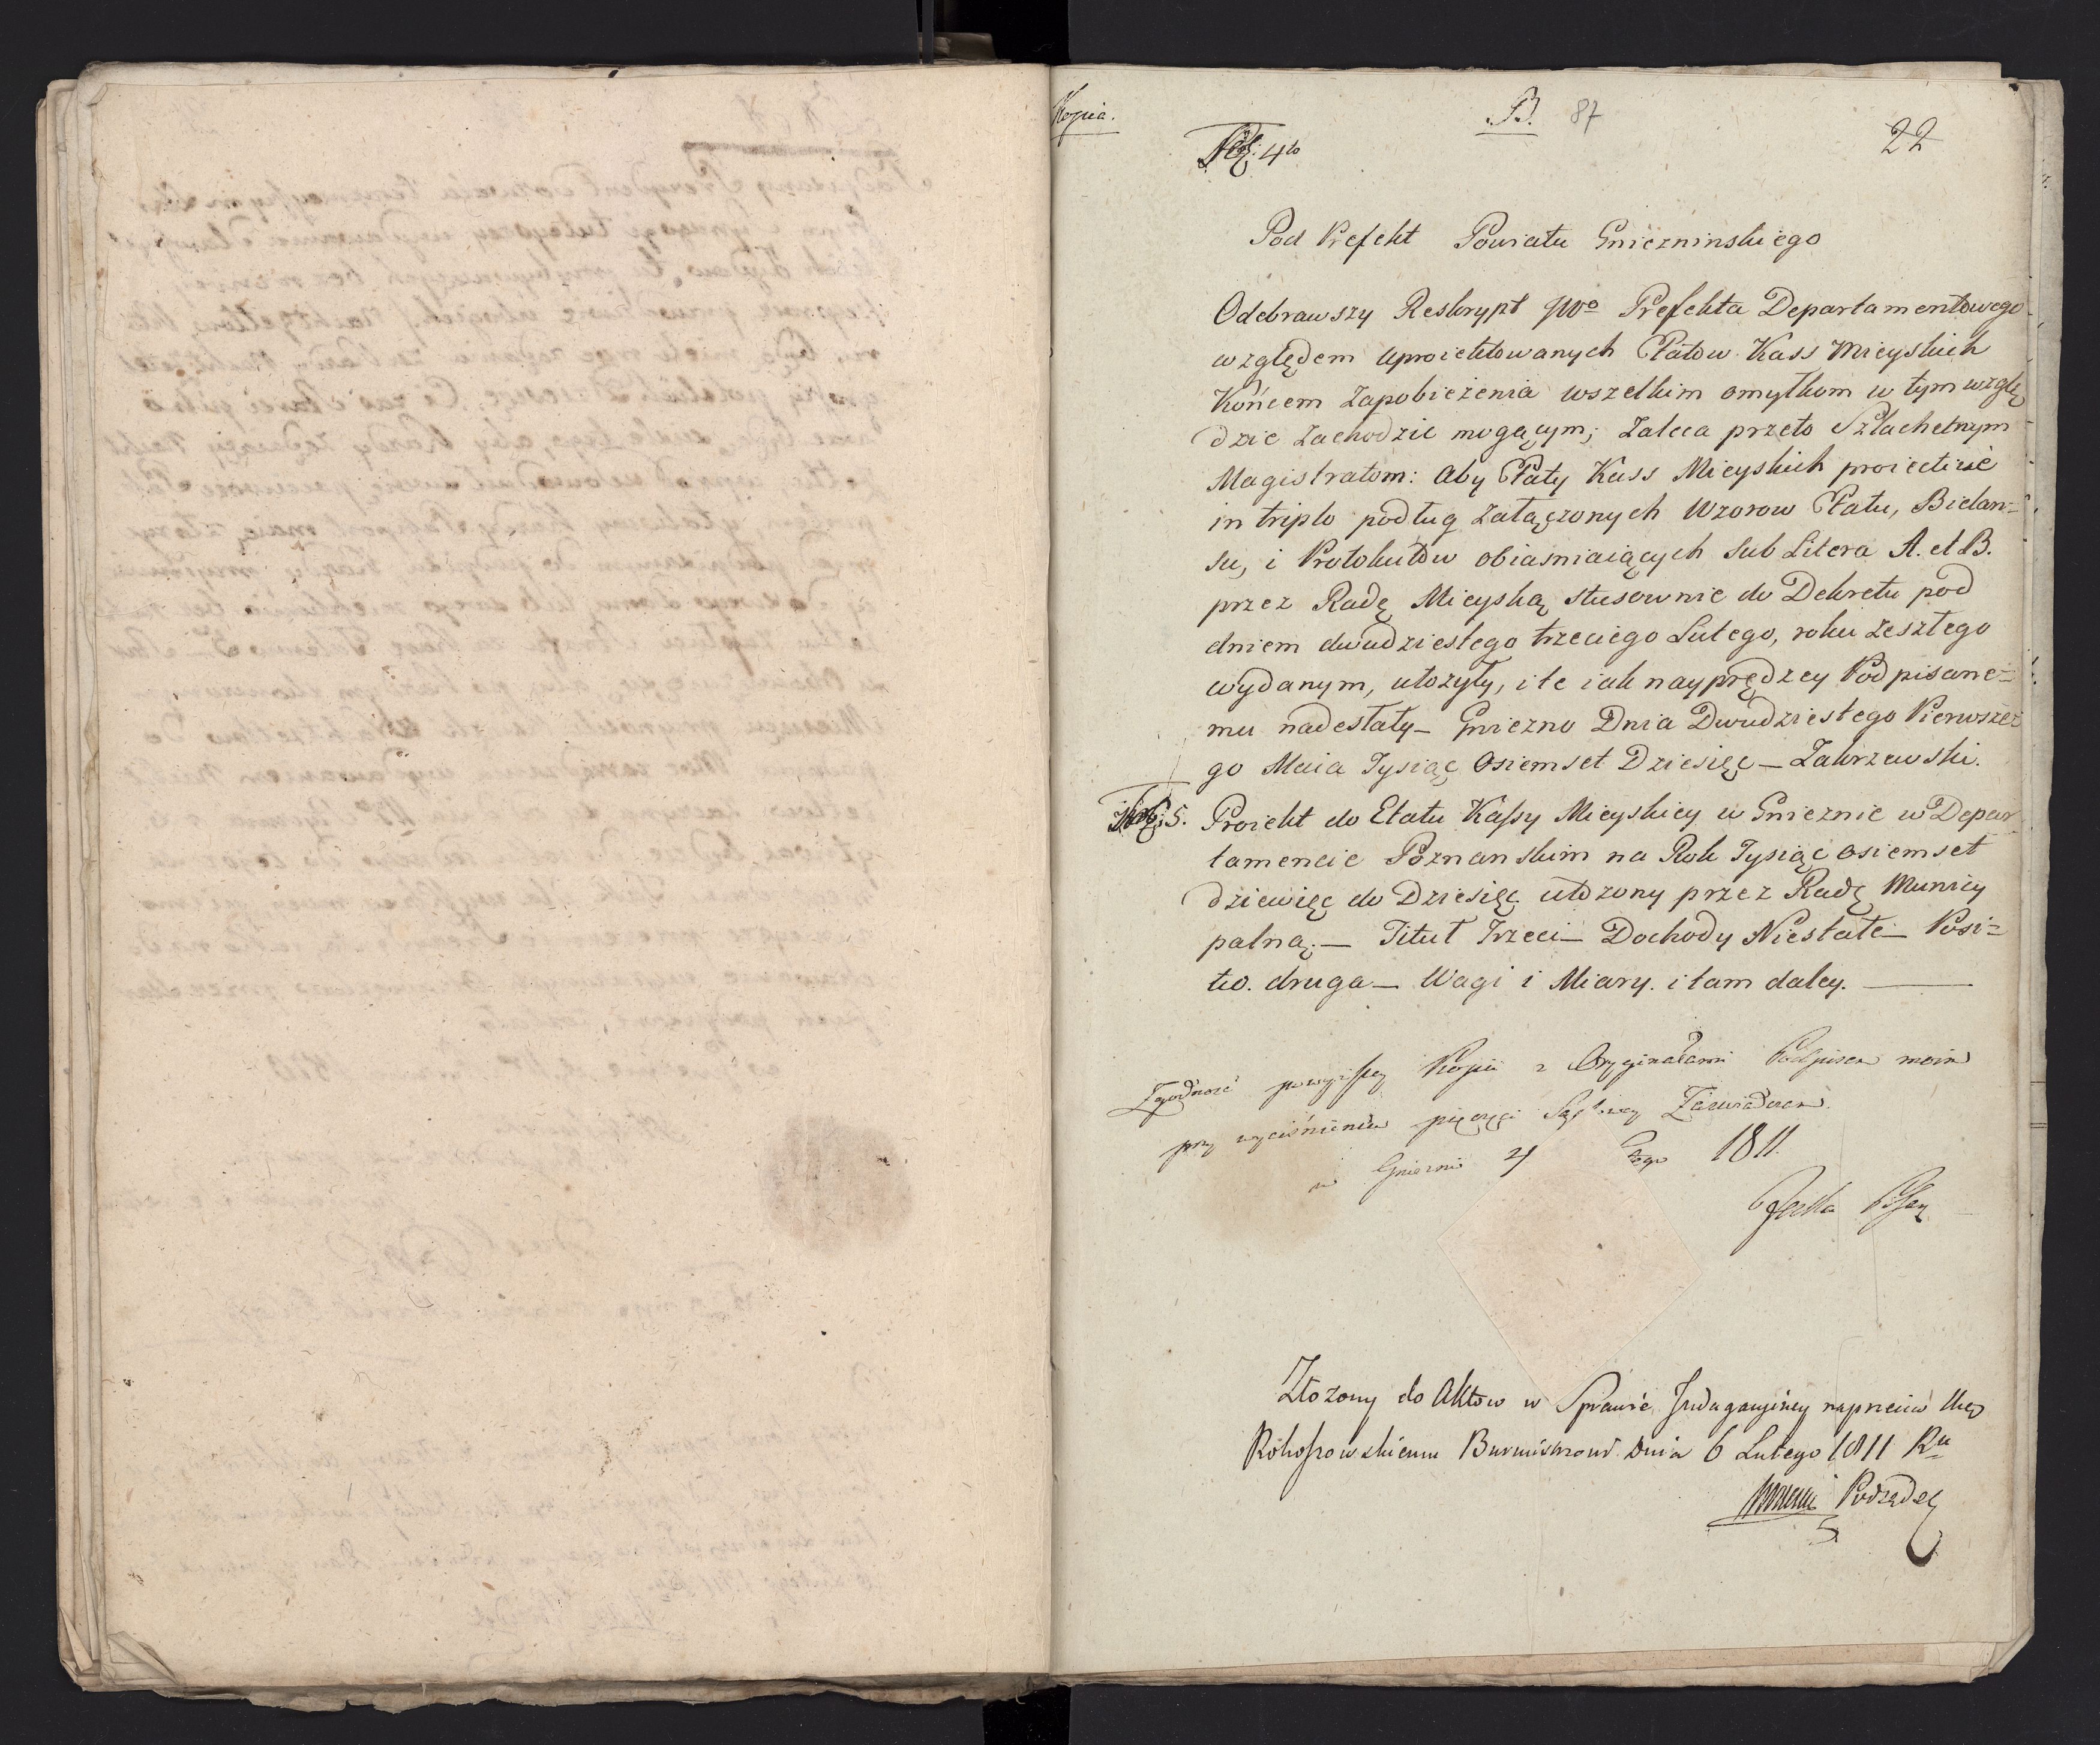 Kopia.
B. 87
22
4to
Pod Prefekt Powiatu Gniezninskiego
Odebrawszy Reskrypt JWo Prefekta Departamentowego
względem uproiektowanych Etatow Kass Mieyskich
Końcem Zapobieżenia wszelkim omyłkom w tym wzglę
dzie zachodzić mogącym; Zaleca przeto Szlachetnym
Magistratom: aby Etaty Kass Mieyskich proiectirić
in triplo podług załączonych Wzorow Etatu, Bielan=
su, i Protokułow obiasniaiących sub Litera A. et B.
przez Radę Mieyską stusownie do Dekretu pod
dniem dwudziestego trzeciego Lutego, roku zeszłego
wydanym, ułożyły, i te iak nayprędzey Podpisane=
mu nadesłały – Gniezno Dnia Dwudziestego Pierwsze
go Maia Tysiąc Osiemset Dziesięć – Zakrzewski.
5. Proiekt do Etatu Kassy Mieyskiey w Gnieznie w Depar
tamencie Poznanskim na Rok Tysiąc osiemset
dziewięć do Dziesięć ułożony przez Radę Municy
palną. – Tituł Trzeci – Dochody Niestałe – Posi=
tio. druga – Wagi i Miary. i tam daley. –
Zgodność powyższey Kopii z Oryginałami Podpisem moim
przy wyciśnieniu pięczęci Sądowey Zaświadczam.
w Gnieznie 1811.
Złożony do Aktow w Sprawie Indagacyiney naprzeciw
Rokossowskiemu Burmistrzowi Dnia 6 Lutego 1811 Ru
Podsędek